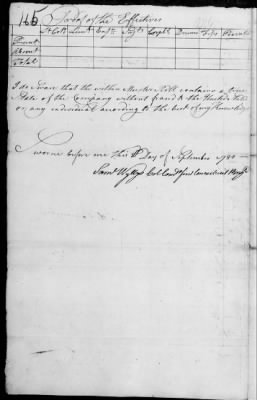 165
Proof of the Effectives
Lieut Capt Serjts Corpls Drums Fifes Privates
Present
Absent
Total
I do Swear that the within Muster Roll contains a true
State of the Company without fraud to the United States
or any individual according to the best of my Knowledge
Sworne before me this Day of September 1780
Saml Wyllys Col Comdt